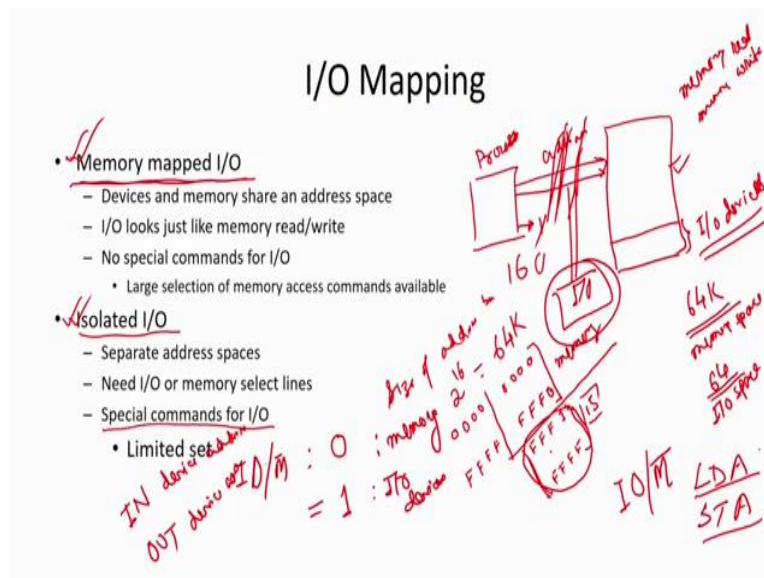 I/O Mapping
• Memory mapped I/O
– Devices and memory share an address space
– I/O looks just like memory read/write
– No special commands for I/O
• Large selection of memory access commands available
• Isolated I/O
– Separate address spaces
– Need I/O or memory select lines
– Special commands for I/O
• Limited set
memory read
memory write
I/O devices
I/O
64K
memory space
64
I/O space
Size of address
2^16 = 64K
memory
0000
0000
FFFF
FFF0
FFFF
15
IO/M : 0 : memory
= 1 : I/O
devices
IN device
OUT device
IO/M
LDA
STA